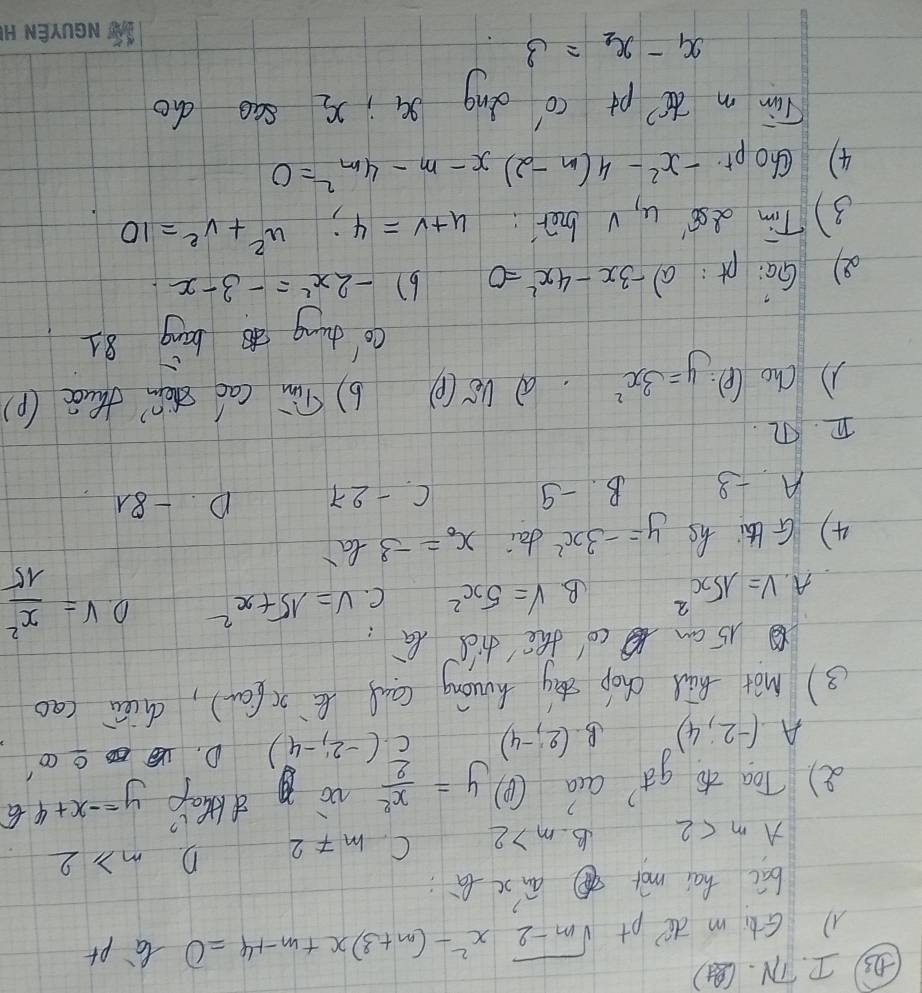 Đ3 I. TN. (2đ)
1) Gtrị m để pt √m-2 x² - (m+3)x + m+4 = 0 là pt
bậc hai một ẩn x là:
A m < 2 B. m > 2 C. m ≠ 2 D. m ≥ 2
2). Toạ độ gđ của (P) y = x²/2 và đthẳng y = -x+4 là
A (-2; 4) B. (2; -4) C. (-2; -4) D. có
3) Một hình chóp đáy hvuông cạnh là x (cm), chiều cao
15 cm có thể tích là:
A. V = 15x² B. V = 5x² C. V = 15 + x² D. V = x²/15
4) G trị hs y = -3x² tại x₀ = -3 là
A. -3 B. -9 C. -27 D. -81.
II. TL.
1) Cho (P): y = 3x². a) Vẽ (P) b) Tìm các điểm thuộc (P)
có tung độ bằng 81
2) Giải pt: a) -3x - 4x² = 0 b) -2x² = -3 - x.
3) Tìm 2 số u, v biết: u+v = 4; u² + v² = 10.
4) Cho pt - x² - 4(m-2)x - m - 4m² = 0
Tìm m để pt có 2ng x₁; x₂ sao cho
x₁ - x₂ = 3.
NGUYÊN H